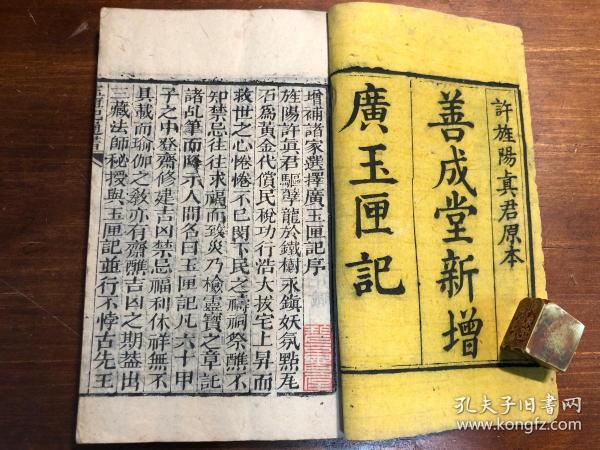 許旌陽真君原本
善成堂新增
廣玉匣記
增補諸家選擇廣玉匣記序
旌陽許真君驅孽龍於鐵樹永鎮妖氛點瓦
石爲黃金代償民稅功行浩大拔宅上昇而
救世之心惓惓不已閔下民之禱祠祭醮不
知禁忌往往求福而致災乃檢靈寶之章託
諸乩筆而降示人間名曰玉匣記凡六十甲
子之中登齋修建吉凶禁忌福利休祥無不
具載而瑜伽之敎亦有齋醮吉凶之期葢出
三藏法師秘授與玉匣記並行不悖古先王
孔夫子旧书网
www.kongfz.com